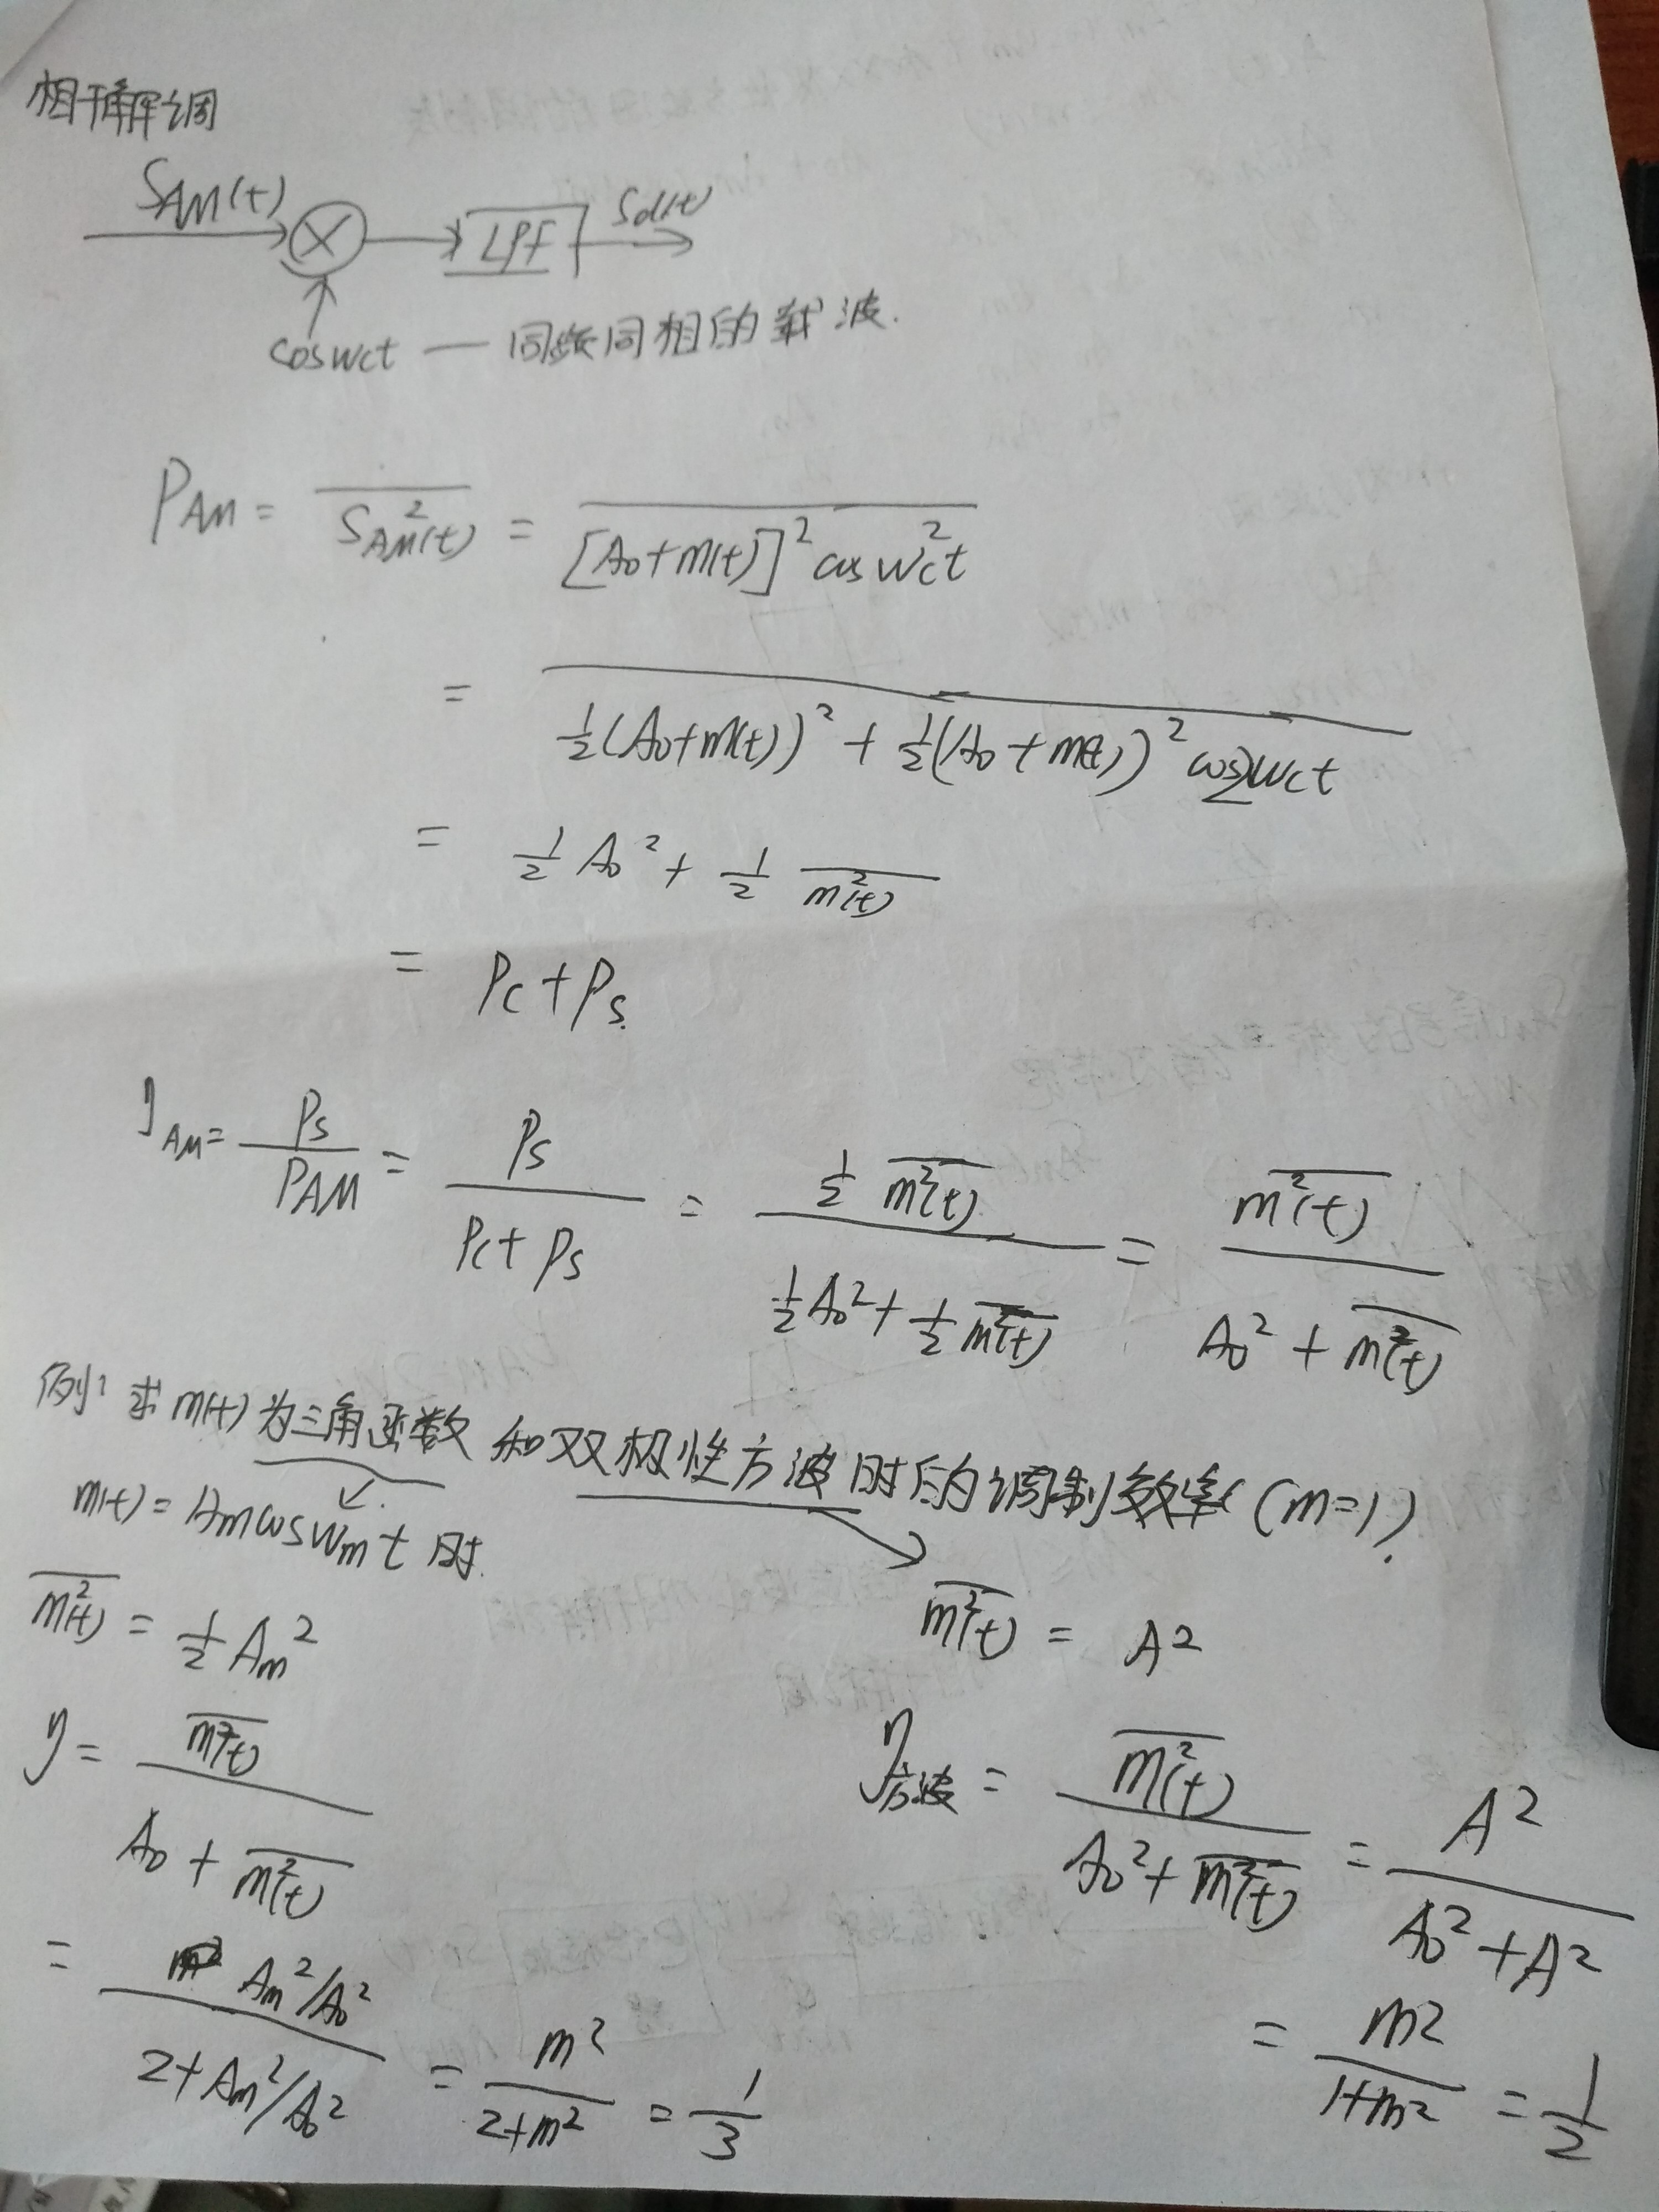 相干解调
SAM(t) ⊗ LPF Sd(t)
coswct — 同频同相的载波.
PAM = \overline{S_{AM}^2(t)} = \overline{[A0+m(t)]^2 cos^2 wct}
= \overline{½(A0+m(t))^2 + ½(A0+m(t))^2 cos2wct}
= ½A0^2 + ½\overline{m^2(t)}
= Pc+Ps.
ηAM = Ps/PAM = Ps/(Pc+Ps) = ½\overline{m^2(t)}/(½A0^2+½\overline{m^2(t)}) = \overline{m^2(t)}/(A0^2+\overline{m^2(t)})
例: 求m(t)为三角函数和双极性方波时的调制效率(m=1).
m(t) = Amcoswmt时.
\overline{m^2(t)} = ½Am^2
η = \overline{m^2(t)}/(A0+\overline{m^2(t)})
= (Am^2/A0^2)/(2+Am^2/A0^2) = m^2/(2+m^2) = 1/3
\overline{m^2(t)} = A^2
η方波 = \overline{m^2(t)}/(A0^2+\overline{m^2(t)}) = A^2/(A0^2+A^2)
= m^2/(1+m^2) = 1/2